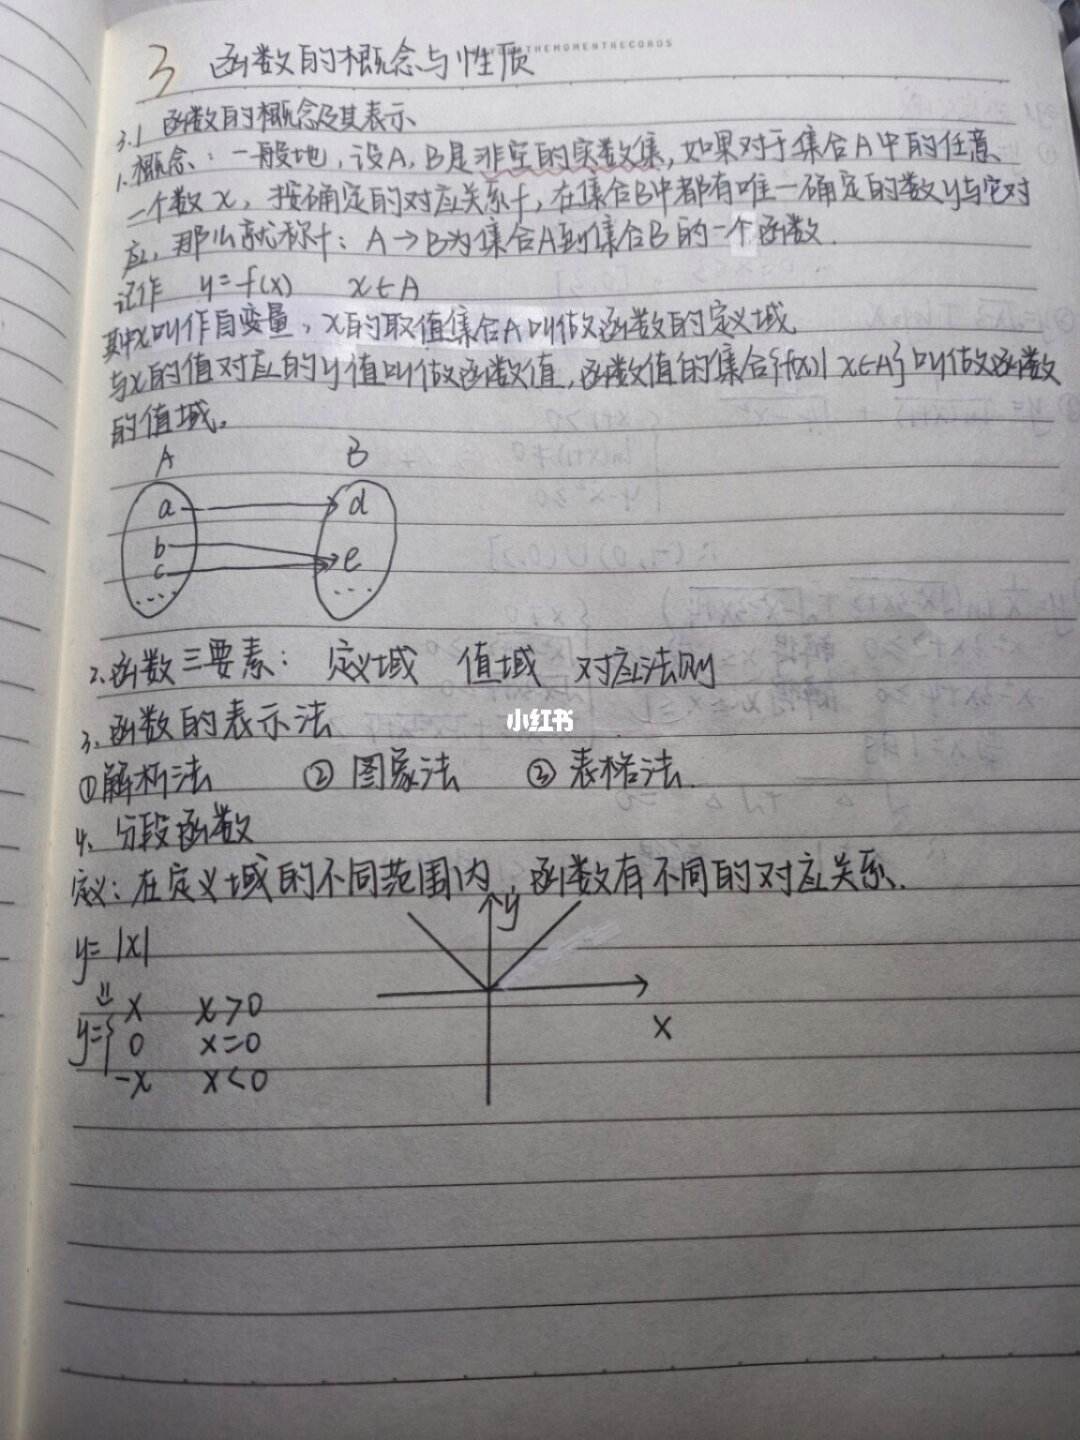 THEMOMENTRECORDS
3 函数的概念与性质
3.1 函数的概念及其表示
1.概念:一般地,设A,B是非空的实数集,如果对于集合A中的任意
一个数x,按确定的对应关系f,在集合B中都有唯一确定的数y与它对
应,那么就称f:A→B为集合A到集合B的一个函数.
记作 y=f(x) x∈A
其中x叫作自变量,x的取值集合A叫做函数的定义域
与x的值对应的y值叫做函数值,函数值的集合{f(x)|x∈A}叫做函数
的值域。
A B
a d
b e
c
... ...
2.函数三要素: 定义域 值域 对应法则
小红书
3.函数的表示法
①解析法 ② 图象法 ③ 表格法.
4.分段函数
定义:在定义域的不同范围内,函数有不同的对应关系.
y
y=|x|
x
y={ x x>0
0 x=0
-x x<0